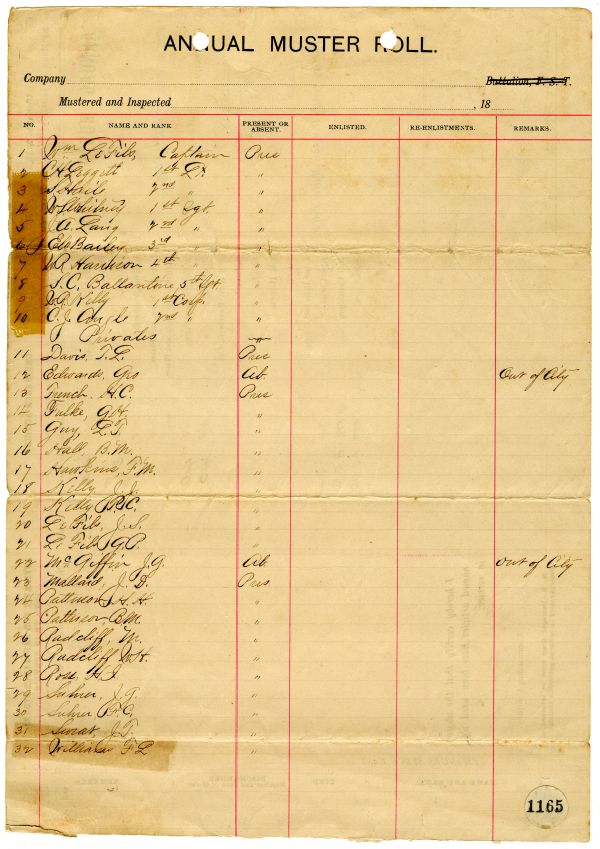 ANNUAL MUSTER ROLL.
Company Battalion, F. S. T.
Mustered and Inspected , 18
NO. NAME AND RANK PRESENT OR ABSENT. ENLISTED. RE-ENLISTMENTS. REMARKS.
1 Wm LeFils, Captain Pres
2 CH Leggett 1st Lt. "
3 2nd " "
4 Whitney 1st Sgt. "
5 A. Lang 2nd " "
6 Ed Bailey 3rd " "
7 W.R. Harrison 4th " "
8 S.C. Ballantine 5th Sgt. "
9 Kelly 1st Corp. "
10 C.J. 2nd " "
Privates "
11 Davis, T.L. Pres
12 Edwards, Geo Ab. Out of City
13 French, H.C. Pres
14 Fulke, G.H. "
15 Guy, L.T. "
16 Hall, B.M. "
17 Hawkins, F.M. "
18 Kelly, J.J. "
19 Kelly P.C. "
20 LeFils, J.S. "
21 LeFils G.P. "
22 McGiffin J.G. Ab. Out of City
23 Mallard, J.D. Pres
24 Pattison H.H. "
25 Pattison B.M. "
26 Radcliff, M. "
27 Radcliff W.H. "
28 Rose, H.J. "
29 Suhrer, J.G. "
30 Suhrer F.C. "
31 Sweat, J.T. "
32 Williams F.L "
1165